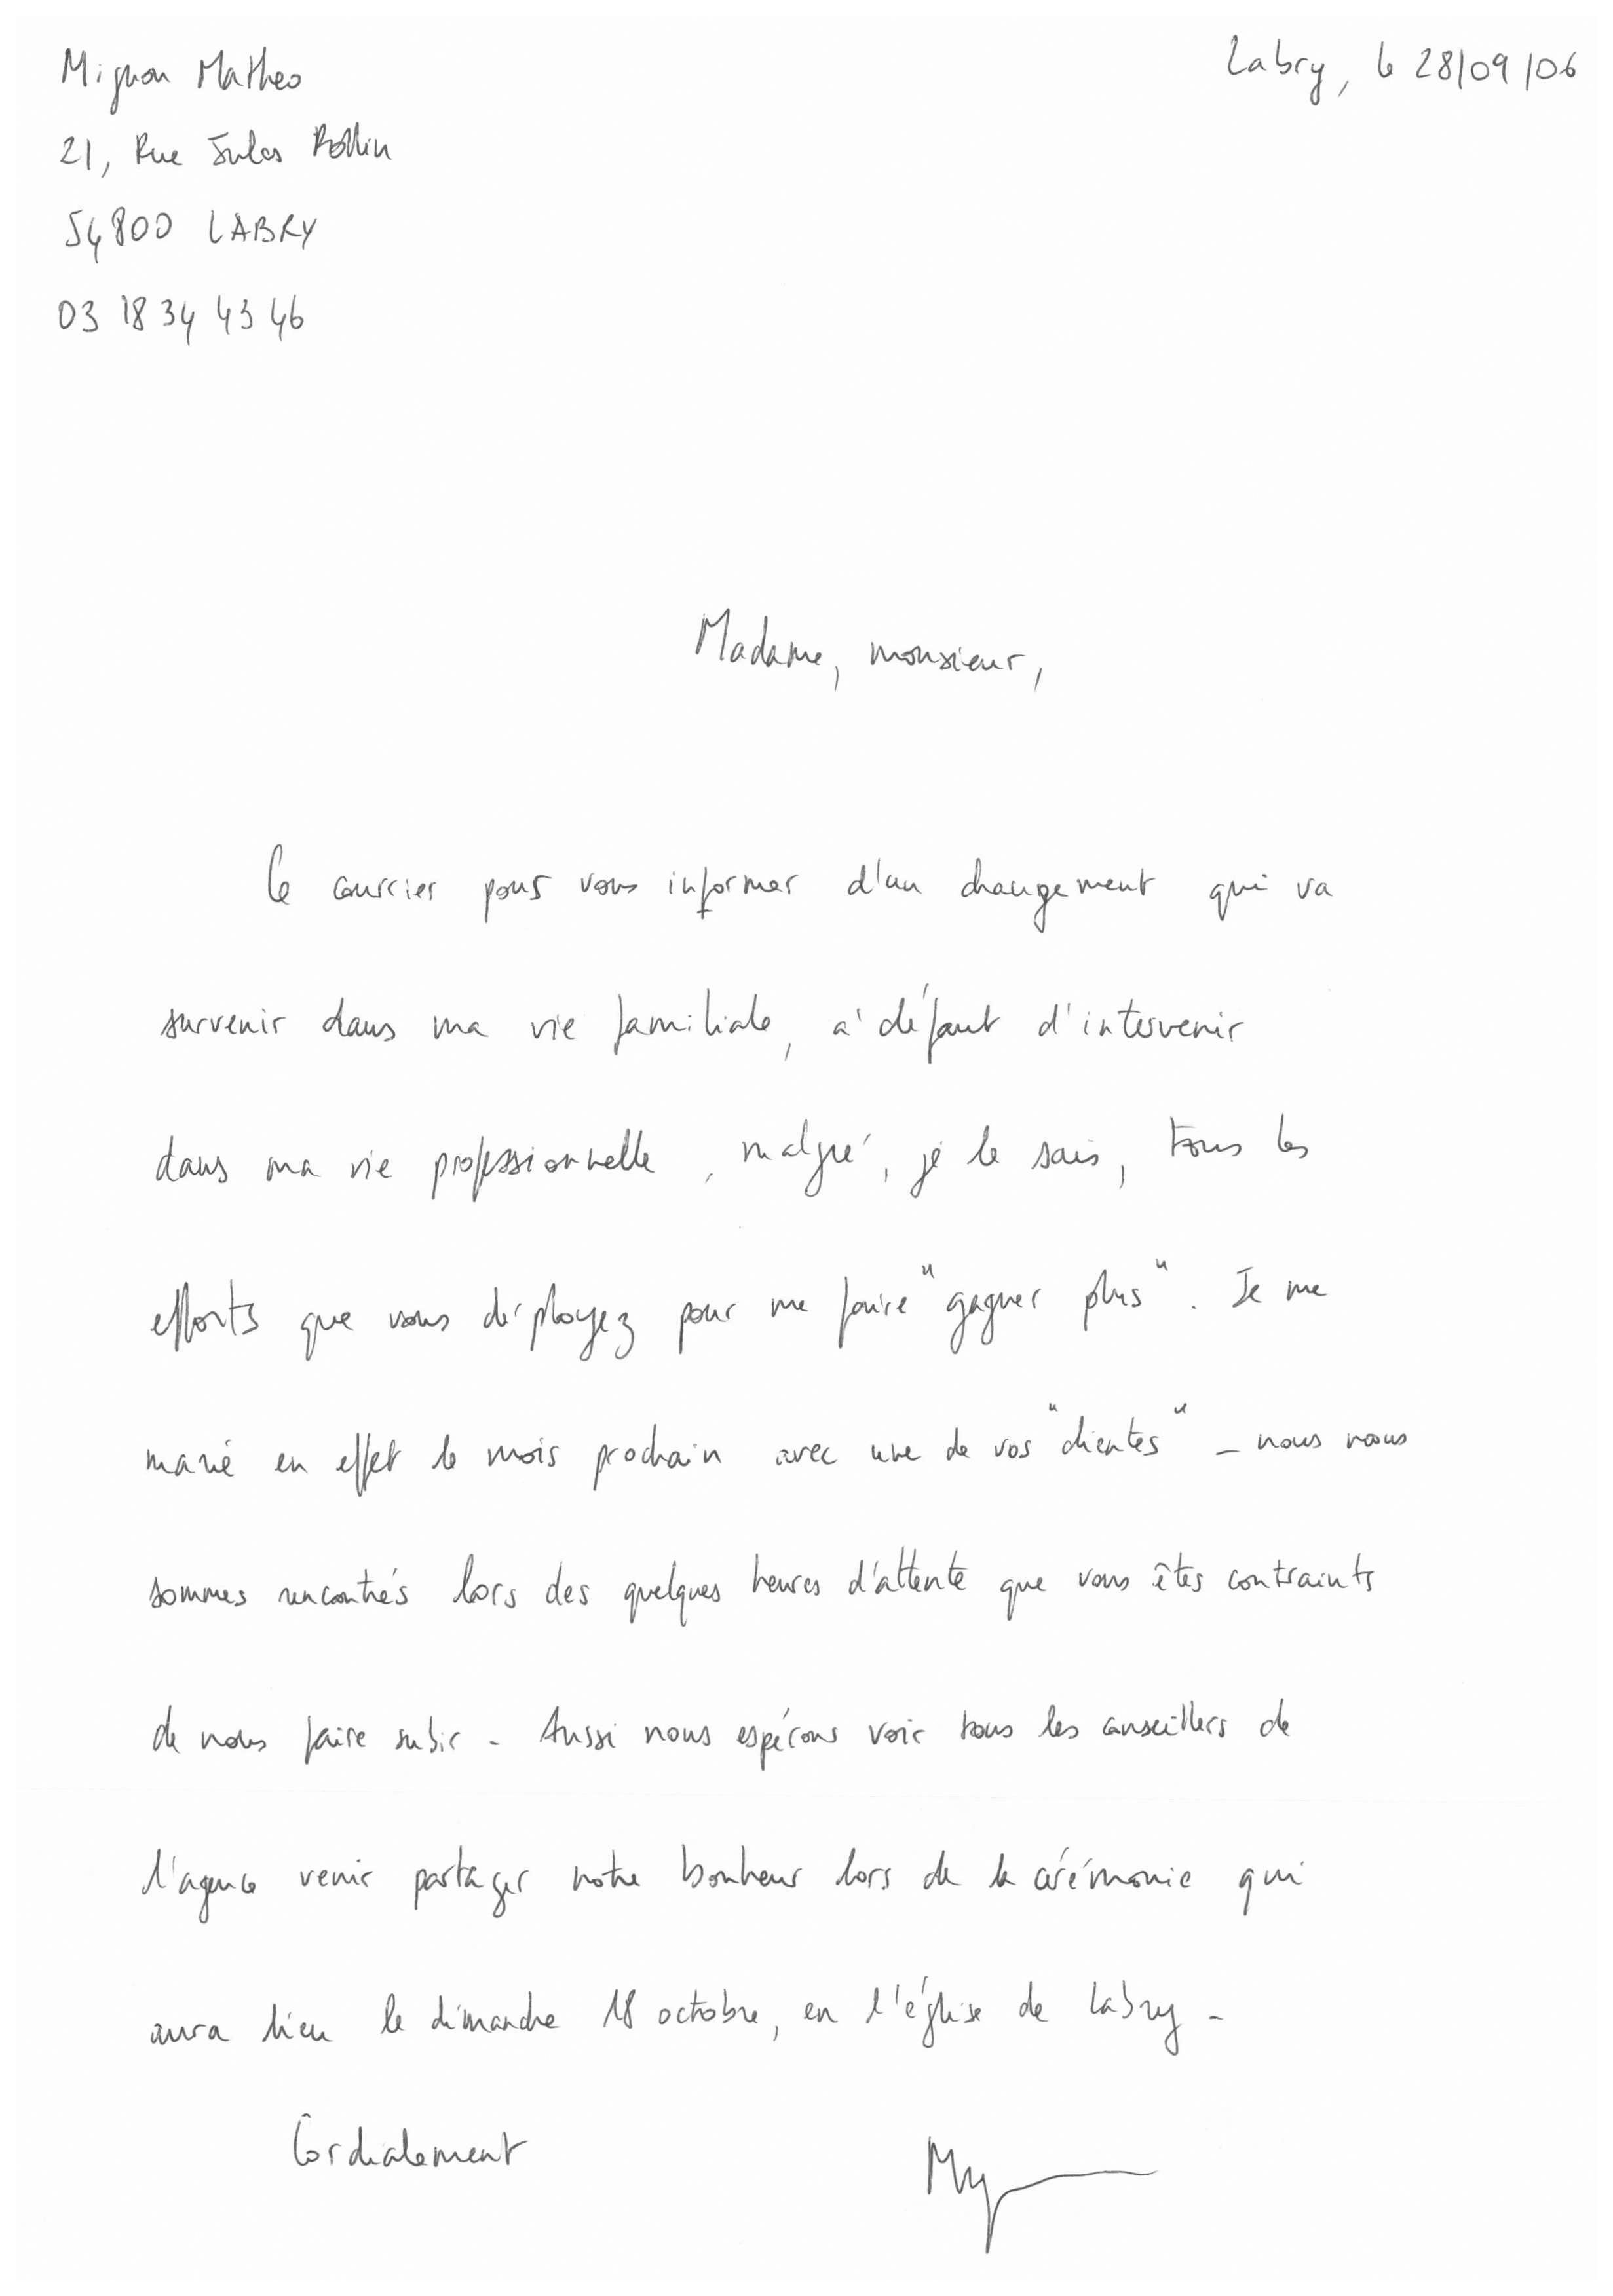 Mignon Matheo
Labry, le 28/09/06
21, Rue Jules Rollin
54800 LABRY
03 18 34 43 46
Madame, monsieur,
Ce courrier pour vous informer d'un changement qui va
survenir dans ma vie familiale, à défaut d'intervenir
dans ma vie professionnelle, malgré, je le sais, tous les
efforts que vous déployez pour me faire "gagner plus". Je me
marie en effet le mois prochain avec une de vos "clientes" - nous nous
sommes rencontrés lors des quelques heures d'attente que vous êtes contraints
de nous faire subir - Aussi nous espérons voir tous les conseillers de
l'agence venir partager notre bonheur lors de la cérémonie qui
aura lieu le dimanche 18 octobre, en l'église de Labry -
Cordialement